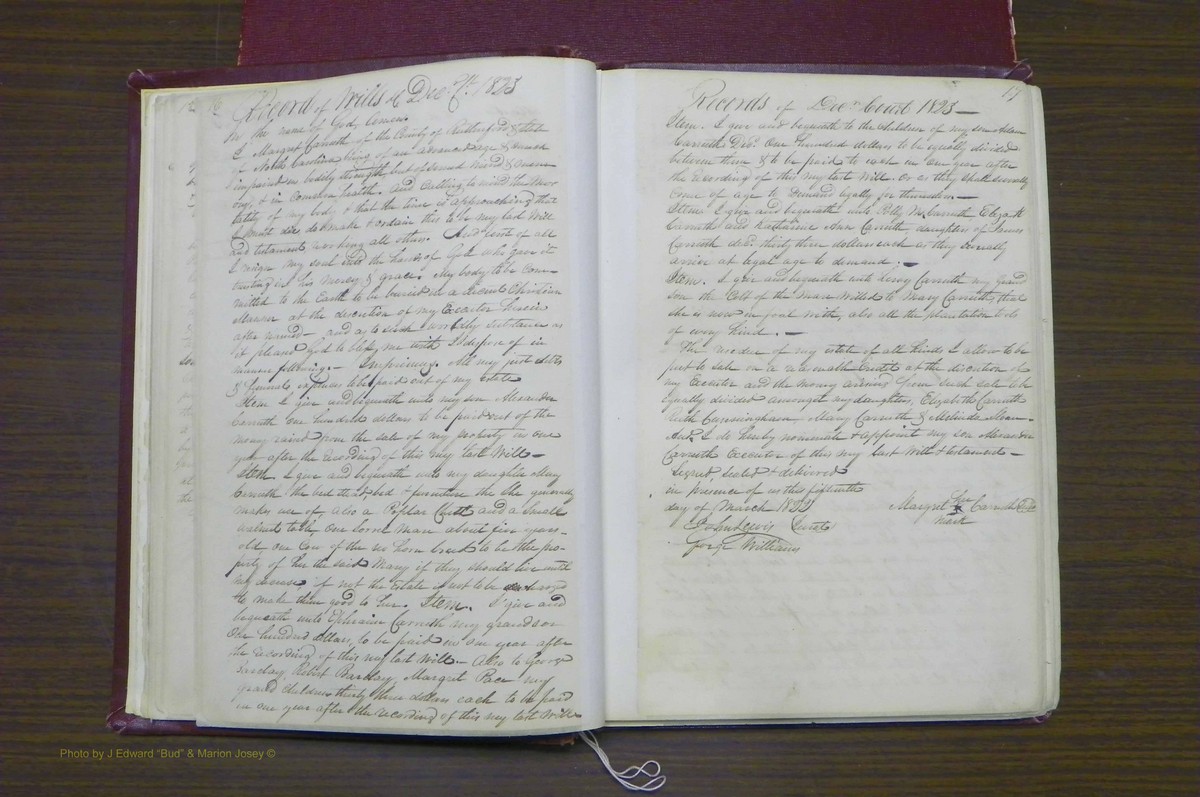 16
Record of Wills of Decr Ct. 1823
In the name of God, amen.
I Margret Carruth of the County of Rutherford & state
of North Carolina being of an advanced age & much
impaired in bodily strength but of sound mind & mem
ory, & in common health. And calling to mind the mor
tality of my body, & that the time is approaching that
I must die, do make & ordain this to be my last Will
and testament revoking all others. And first of all
I resign my soul into the hands of God who gave it
trusting in his mercy & grace. My body to be com
mitted to the Earth to be buried in a decent Christian
Manner at the discretion of my Executor herein
after named — and as to such worldly substance as
it pleased God to bless me with I dispose of in
manner following. — Imprimis, All my just debts
& funeral expenses to be paid out of my estate
Item I give and bequeath unto my son Alexander
Carruth one hundred dollars to be paid out of the
money raised from the sale of my property in one
year after the recording of this my last Will —
Item I give and bequeath unto my daughter Mary
Carruth the bed stead bed & furniture she generally
makes use of also a Poplar Chest and a small
walnut table, one Sorrel Mare about five years
old one Cow of the no horn breed to be the pro-
perty of her the said Mary if they should live until
my decease, if not the Estate is not to be
to make them good to her. Item. I give and
bequeath unto Ephraim Carruth my grandson
One hundred dollars, to be paid in one year after
the recording of this my last Will — Also to George
Barclay, Robert Barclay, Margret Pace my
grand children thirty three dollars each to be paid
in one year after the recording of this my last Will
17
Records of Decr Court 1823 —
Item. I give and bequeath to the children of my son Adam
Carruth Decd. One hundred dollars to be equally divided
between them & to be paid to each in one year after
the recording of this my last Will. Or as they shall severally
Come of age to demand legally for themselves —
Item I give and bequeath unto Polly M. Carruth Elizabeth
Carruth and Katharine Ann Carruth, daughters of James
Carruth decd. thirty three dollars each as they severally
arrive at legal age to demand. —
Item. I give and bequeath unto Leroy Carruth my grand
son the Colt of the Mare Willed to Mary Carruth, that
she is now in foal with, also all the plantation tools
of every kind. —
The residue of my estate of all kinds I allow to be
put to sale on a reasonable Credit at the discretion of
my Executor and the money arising from such sale to be
equally divided amongst my daughters, Elizabeth Carruth
Ruth Cunningham, Mary Carruth & Melinda —
And I do hereby nominate & appoint my son Alexander
Carruth Executor of this my last Will & testament —
Signed, sealed & delivered
in presence of us this fifteenth
day of March 1822
Margret her x Carruth Seal
mark
Lewis
George Williams
Photo by J Edward "Bud" & Marion Josey ©